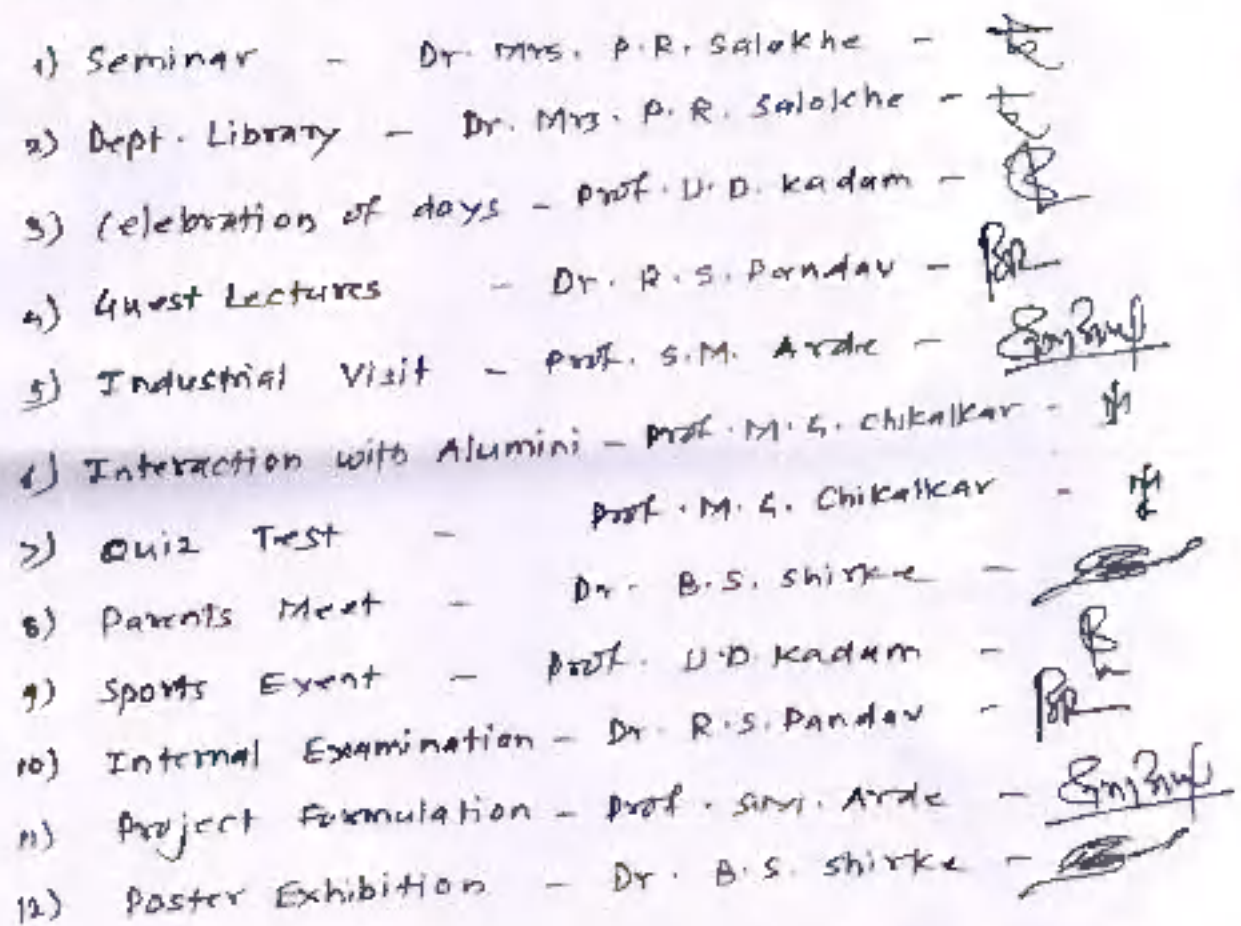 1) Seminar - Dr. Mrs. P.R. Salokhe -
2) Dept. Library - Dr. Mrs. P. R. Salokhe -
3) Celebration of days - Prof. U.D. Kadam -
4) Guest Lectures - Dr. R.S. Pandav -
5) Industrial Visit - Prof. S.M. Arde -
6) Interaction with Alumini - Prof. M.G. Chikalkar -
7) Quiz Test - Prof. M.G. Chikalkar -
8) Parents Meet - Dr. B.S. Shirke -
9) Sports Event - Prof. U.D. Kadam -
10) Internal Examination - Dr. R.S. Pandav -
11) Project Formulation - Prof. S.M. Arde -
12) Poster Exhibition - Dr. B.S. Shirke -